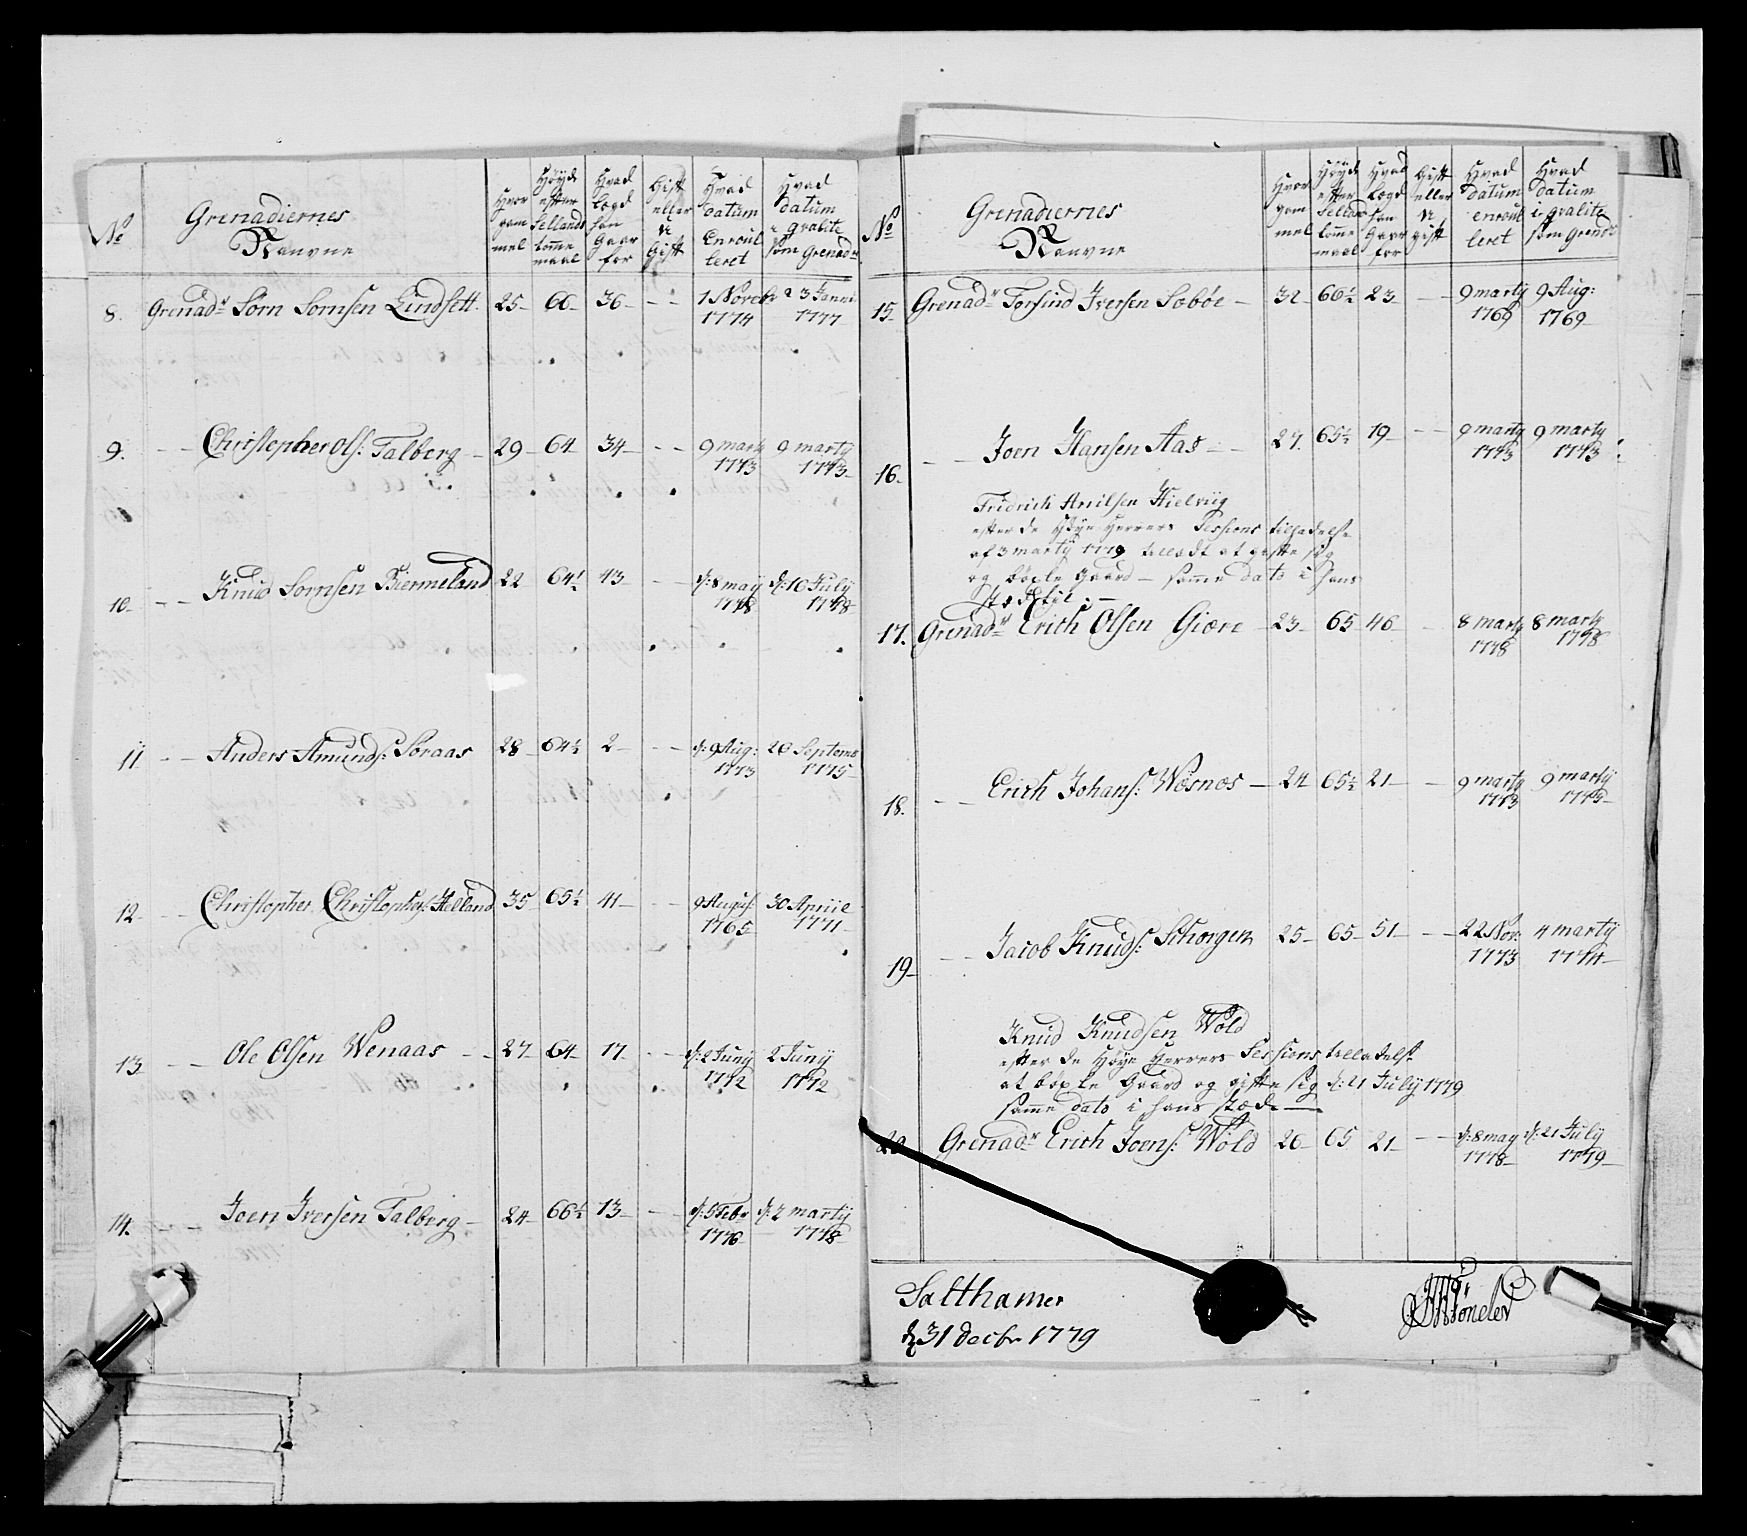 No
Grenadiernes
Nauvne
Hvor
gam
mel
Høyde
efter
Sellands
tomme
maal
Hvad
Lægd
han
Gaar
for
Gift
eller
ei
Gift
Hvad
Datum
Enroul
leret
Hvad
datum
i qvalite
som Grenadr
8. Grenadr Sørn Sørnsen Lindsett 25 66 36 - - 1 Novebr 23 Janu
1774 1777
9. - - Christopher Ols: Talberg 29 64 34 - - 9 marty 9 marty
1773 1773
10. - - Knud Sørnsen Biermeland 22 64½ 43 - - d: 8 may d: 16 July
1778 1778
11 - - Anders Amunds: Søraas 28 64½ 2 - - d: 9 Aug: 26 Septemb
1773 1775
12 - - Christopher Christophers: Helland 35 65½ 41 - - 9 August 30 Apriil
1765 1771
13 - - Ole Olsen Wenaas - - 27 64 17 - - d: 2 Juny 2 Juny
1772 1772
14. Joen Iversen Talberg 24 66½ 13 - - d: 5 Febr d: 2 marty
1776 1778
No
Grenadiernes
Nauvne
Hvor
gam
mel
Høyde
efter
Sellads
tomme
maal
Hvad
Lægd
han
Gaar
for
Gift
eller
ei
gift
Hvad
datum
enroul
leret
Hvad
datum
i qvalite
som Grendr
15 Grenadr Torsind Iversen Sæbøe 32 66½ 23 - - 9 marty 9 Aug:
1769 1769
16 - - Joen Hansen Aas - - 27. 65½ 19 - - 9 marty 9 marty
1773 1773
Fridrich Arnilsen Hielviig
efter de Høye Herrers Sessions tilladelse
af 3 marty 1779 tilladt at gifte sig
og bøxle Gaard - samme dato i hans
stæd
17. Grenadr Erich Olsen Giøre 23 65 46 - 8 marty 8 marty
1778 1778
18. - - Erich Johans: Wæsnæs 24 65½ 21 - 9 marty 9 marty
1773 1773
19 - - Jacob Knuds: Schorgen 25 65 51 - - 22 Nov: 4 marty
1773 1774
Knud Knudsen Wold
efter de Høye Herrers Sessions tilladelse
at bøxle Gaard og gifte sig d: 21 July 1779
samme dato i hans stæde
20 Grenadr Erich Joens: Wold 26 65 21 - - d: 8 may d: 21 July
1778 1779
Salthamer
d 31 decbr 1779